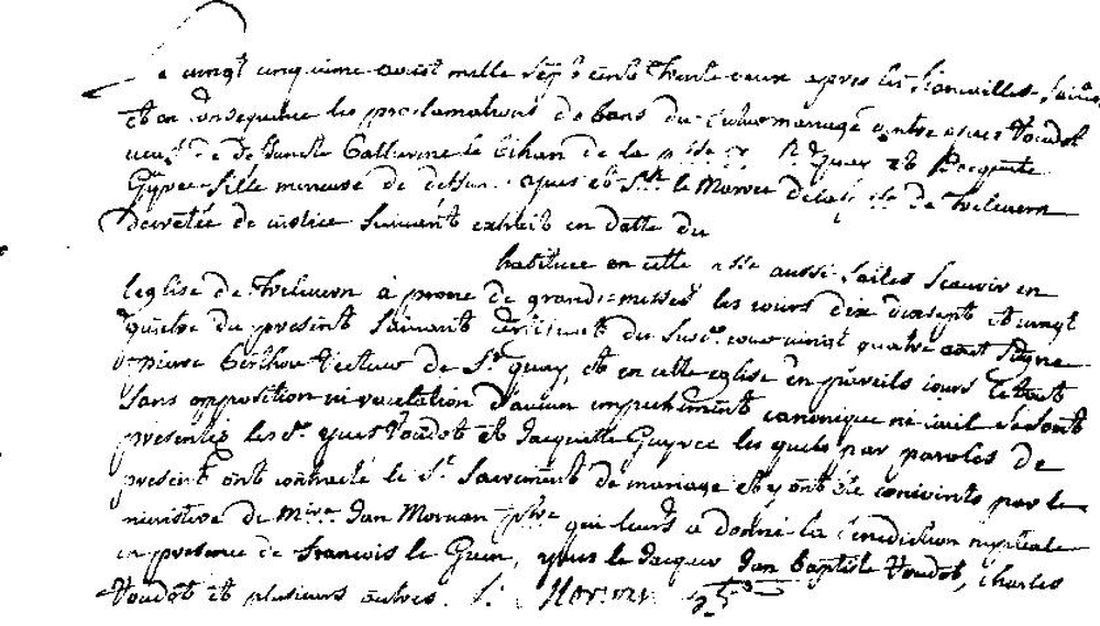 Le vingt cinquieme aoust mille sept cents trente deux apres les fiancailles faites
et en consequence les proclamations de bans du futur mariage entre yves Toudot
veuf de deffuncte Catherine le Bihan de la p.sse de St Quay et Jacquette
Guyvec fille mineure de deffunt yves et le Morvan de la p.sse de Trelevern
decretée de justice suivant extrait en datte du
habituee en cette p.sse aussi faites scavoir en
leglise de Trelevern a prone de grandes messes les jours dix dixsept et vingt
quatre du present suivant certificat du jour vingt quatre aout signe
pierre Recteur de St quay, et en cette eglise en pareils jours le tout
sans opposition ni revelation d'aucun empechement canonique ni civil se sont
presentés les d. yves Toudot et Jacquette Guyvec les quels par paroles de
present ont contracté le St Sacrement de mariage et y ont été conjoints par le
ministere de Jan Morvan p.tre qui leurs a donné la benediction nuptiale
en presence de francois le Guen, yves le Jacquer Jan baptiste Toudot, charles
Toudot et plusieurs autres.